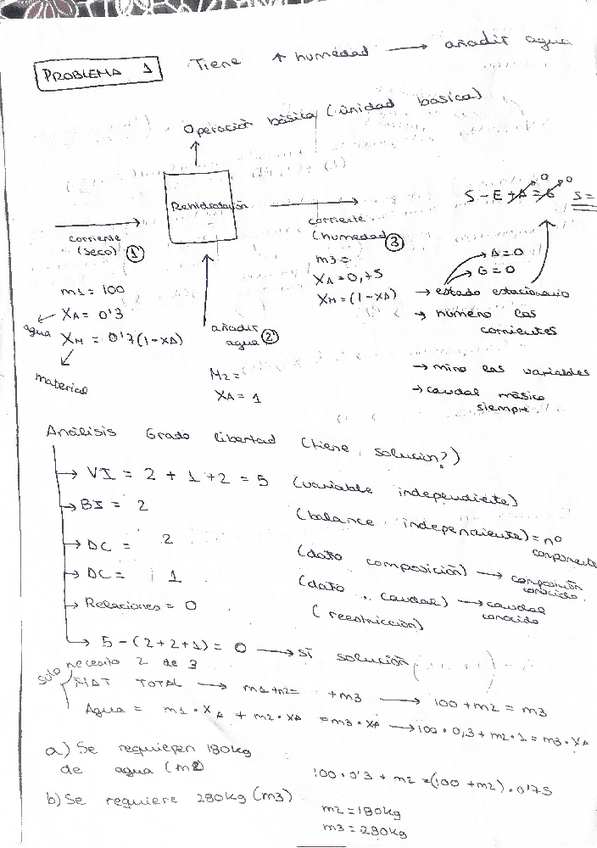 PROBLEMA 1
Tiene ↑ humedad → añadir agua
Operación básica (unidad basica)
Rehidratación
S - E + A = G S =
0 0
corriente (seco) ①
corriente (humedad) ③
m1 = 100
XA = 0'3
agua
XM = 0'7 (1-XA)
material
añadir agua ②
M2 =
XA = 1
m3 =
XA = 0,75
XM = (1-XA)
A = 0
G = 0
→ estado estacionario
→ numero las corrientes
→ miro las variables
→ caudal másico siempre!
Análisis Grado libertad (tiene solución?)
→ VI = 2 + 1 + 2 = 5 (variable independiente)
→ BI = 2 (balance independiente) = nº componente
→ DC = 2 (dato composición) → composición conocido
→ DC = 1 (dato caudal) → caudal conocido
→ Relaciones = 0 (restricción)
→ 5 - (2+2+1) = 0 → sí solución
solo necesito 2 de 3
MAT TOTAL → m1 + m2 = + m3 → 100 + m2 = m3
Agua = m1 · XA + m2 · XA = m3 · XA → 100 · 0,3 + m2 · 1 = m3 · XA
a) Se requieren 180kg
de agua (m2)
100 · 0'3 + m2 = (100 + m2) · 0'75
b) Se requiere 280kg (m3)
m2 = 180kg
m3 = 280kg